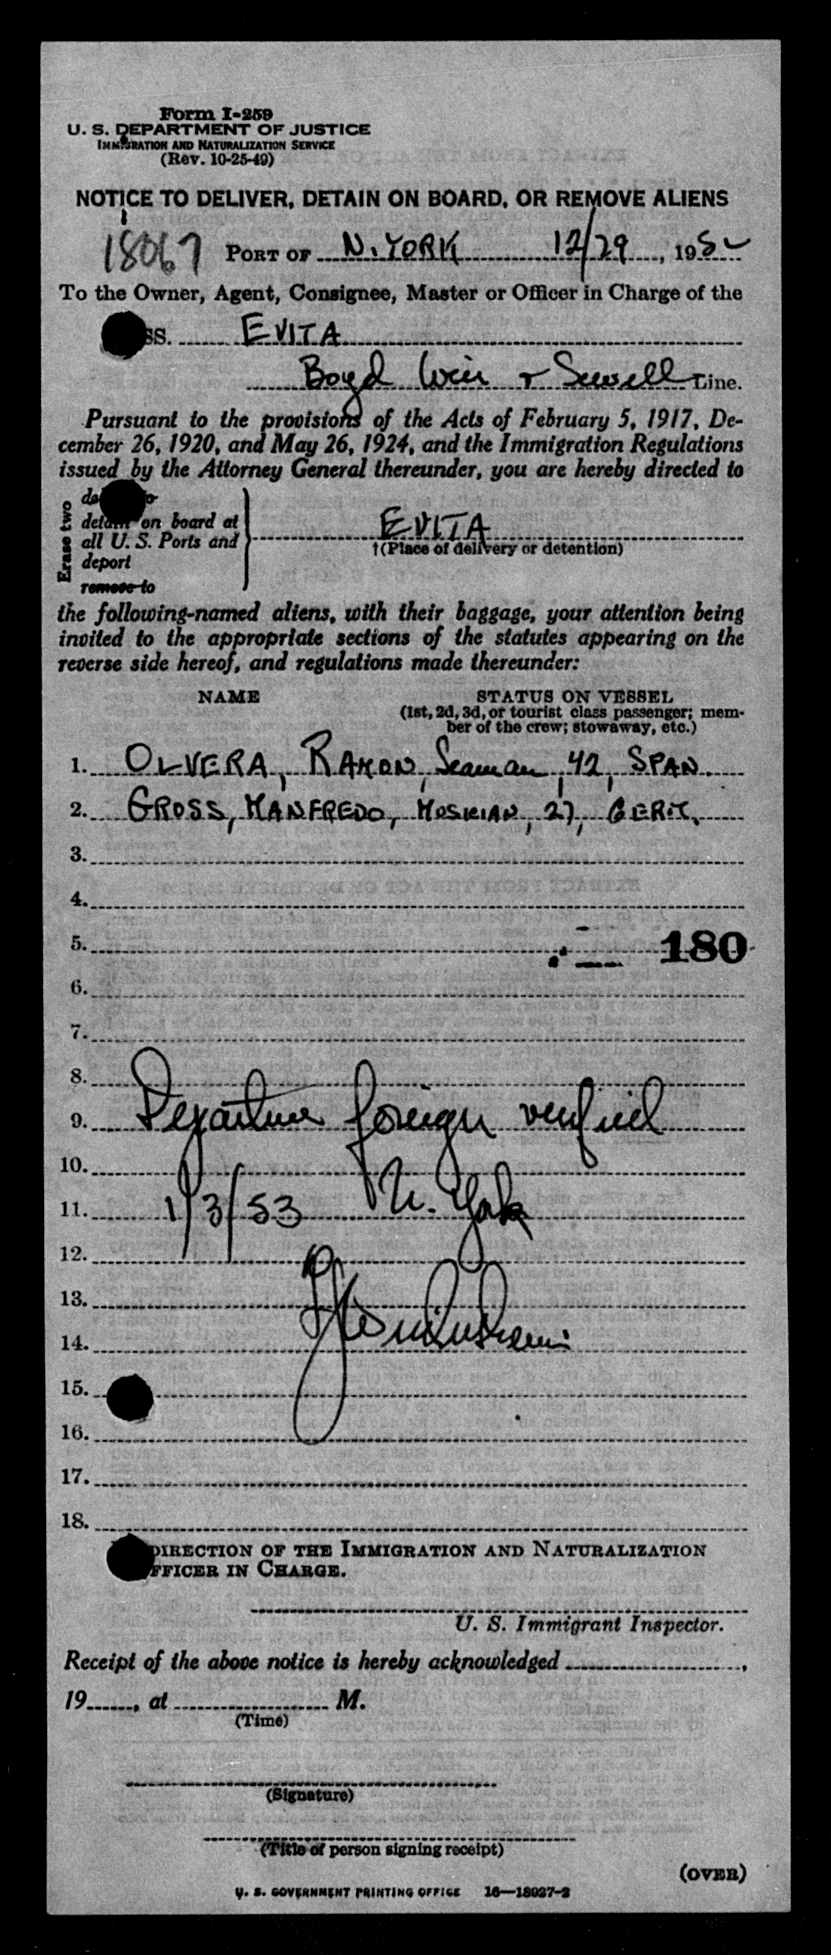 Form I-259
U. S. DEPARTMENT OF JUSTICE
IMMIGRATION AND NATURALIZATION SERVICE
(Rev. 10-25-49)
NOTICE TO DELIVER, DETAIN ON BOARD, OR REMOVE ALIENS
18067 PORT OF N. YORK 12/29, 1952
To the Owner, Agent, Consignee, Master or Officer in Charge of the
SS. EVITA
Boyd Weir & Sewell Line.
Pursuant to the provisions of the Acts of February 5, 1917, De-
cember 26, 1920, and May 26, 1924, and the Immigration Regulations
issued by the Attorney General thereunder, you are hereby directed to
Erase two
detain on board at EVITA
all U. S. Ports and †(Place of delivery or detention)
deport
remove to
the following-named aliens, with their baggage, your attention being
invited to the appropriate sections of the statutes appearing on the
reverse side hereof, and regulations made thereunder:
NAME STATUS ON VESSEL
(1st, 2d, 3d, or tourist class passenger; mem-
ber of the crew; stowaway, etc.)
1. OLVERA, RAMON, Seaman, 42, SPAN.
2. GROSS, MANFREDO, 27, GERM.
3.
4.
5. 180
6.
7.
8.
9. Departure foreign verified
10.
11. 1/3/53 N. York
12.
13.
14.
15.
16.
17.
18.
DIRECTION OF THE IMMIGRATION AND NATURALIZATION
OFFICER IN CHARGE.
U. S. Immigrant Inspector.
Receipt of the above notice is hereby acknowledged ,
19 , at M.
(Time)
(Signature)
(Title of person signing receipt)
(OVER)
U. S. GOVERNMENT PRINTING OFFICE 16—18027-2